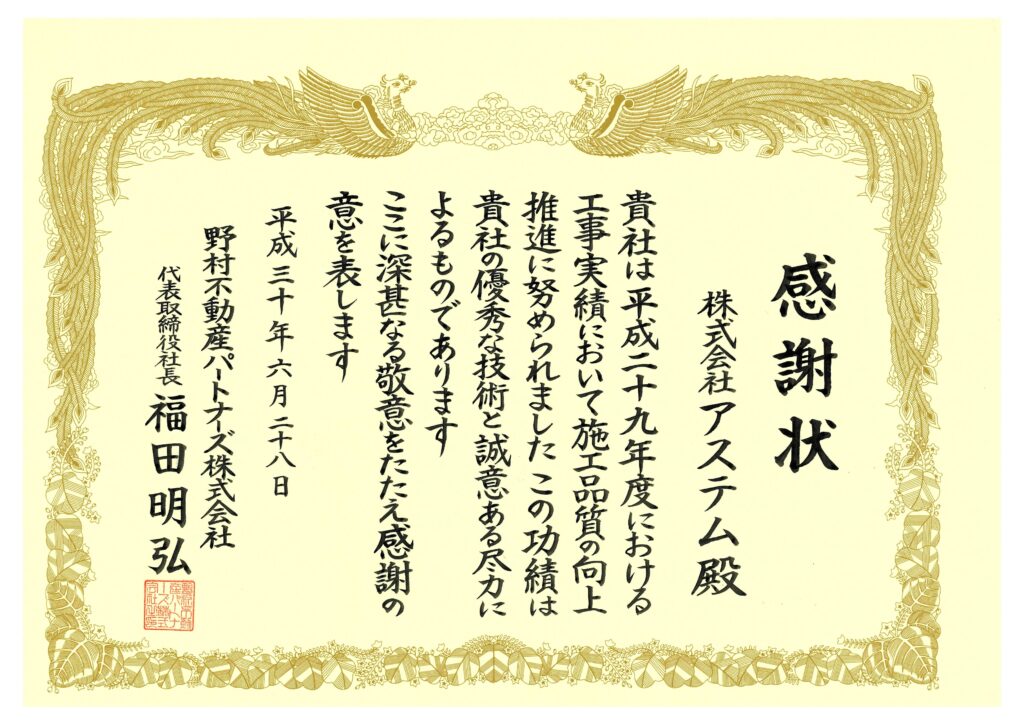 感謝状
株式会社アステム殿
貴社は平成二十九年度における
工事実績において施工品質の向上
推進に努められました この功績は
貴社の優秀な技術と誠意ある尽力に
よるものであります
ここに深甚なる敬意をたたえ感謝の
意を表します
平成三十年六月二十八日
野村不動産パートナーズ株式会社
代表取締役社長 福田明弘